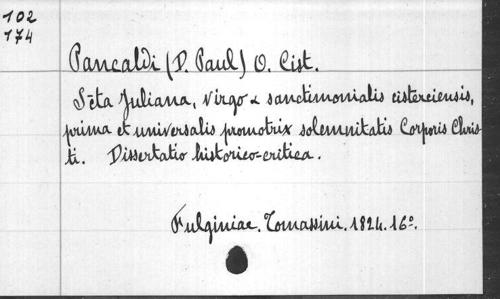 102
174
Pancaldi (D. Paul) O. Cist.
S-cta Juliana, Virgo & sanctimonialis cisterciensis,
prima et universalis promotrix solemnitatis Corporis Chris
ti. Dissertatio historico-critica.
Fulginiae. Tomassini. 1824. 16º.